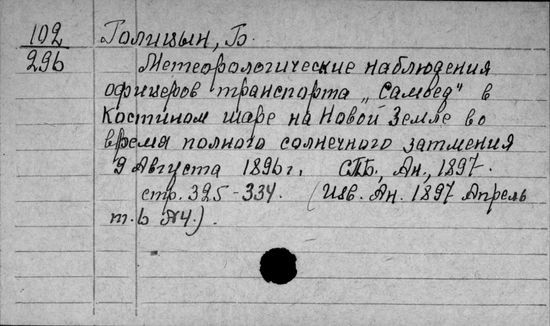 102
29b
Голицын, Б.
Метеорологические наблюдения
офицеров транспорта „Самоед" в
Костином шаре на Новой Земле во
время полного солнечного затмения
9 Августа 1896 г. СПБ., Ан., 1897.
стр. 325-334. (Изв. Ан. 1897 Апрель
т. 6 №4.)